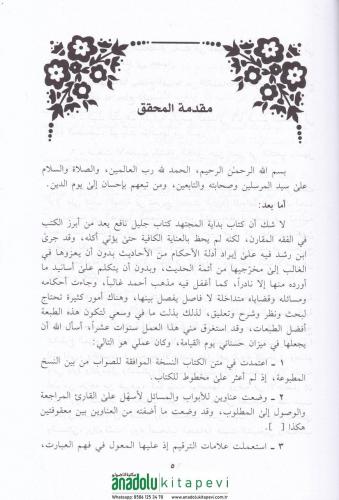 مقدمة المحقق
بسم الله الرحمٰن الرحيم، الحمد لله رب العالمين، والصلاة والسلام
علىٰ سيد المرسلين وصحابته والتابعين، ومن تبعهم بإحسان إلىٰ يوم الدين.
أما بعد:
لا شك أن كتاب بداية المجتهد كتاب جليل نافع يعد من أبرز الكتب
في الفقه المقارن، لكنه لم يحظ بالعناية الكافية حتىٰ يؤتي أكله، وقد جرىٰ
ابن رشد فيه علىٰ إيراد أدلة الأحكام من الأحاديث بدون أن يعزوها في
الغالب إلىٰ مخرّجيها من أئمة الحديث، وبدون أن يتكلم علىٰ أسانيد ما
أورده منها إلا نادراً، كما أغفل فيه مذهب أحمد غالباً، وجاءت أحكامه
ومسائله وقضاياه متداخلة لا فاصل يفصل بينها، وهناك أمور كثيرة تحتاج
لبحث ونظر وشرح وتعليق، لذلك بذلت ما في وسعي لتكون هذه الطبعة
أفضل الطبعات، وقد استغرق مني هذا العمل سنوات عشراً، أسأل الله أن
يجعلها في ميزان حسناتي يوم القيامة، وكان عملي هو التالي:
١ ـ اعتمدت في متن الكتاب النسخة الموافقة للصواب من بين النسخ
المطبوعة، إذ لم أعثر علىٰ مخطوط للكتاب.
٢ ـ وضعت عناوين للأبواب والمسائل لأسهل علىٰ القارئ المراجعة
والوصول إلىٰ المطلوب، وقد وضعت ما أضفته من العناوين بين معقوفتين
هكذا [ ].
٣ ـ استعملت علامات الترقيم إذ عليها المعول في فهم العبارت،
٥
anadolu kitapevi
Whatsapp: 0506 125 24 70 www.anadolukitapevi.com.tr